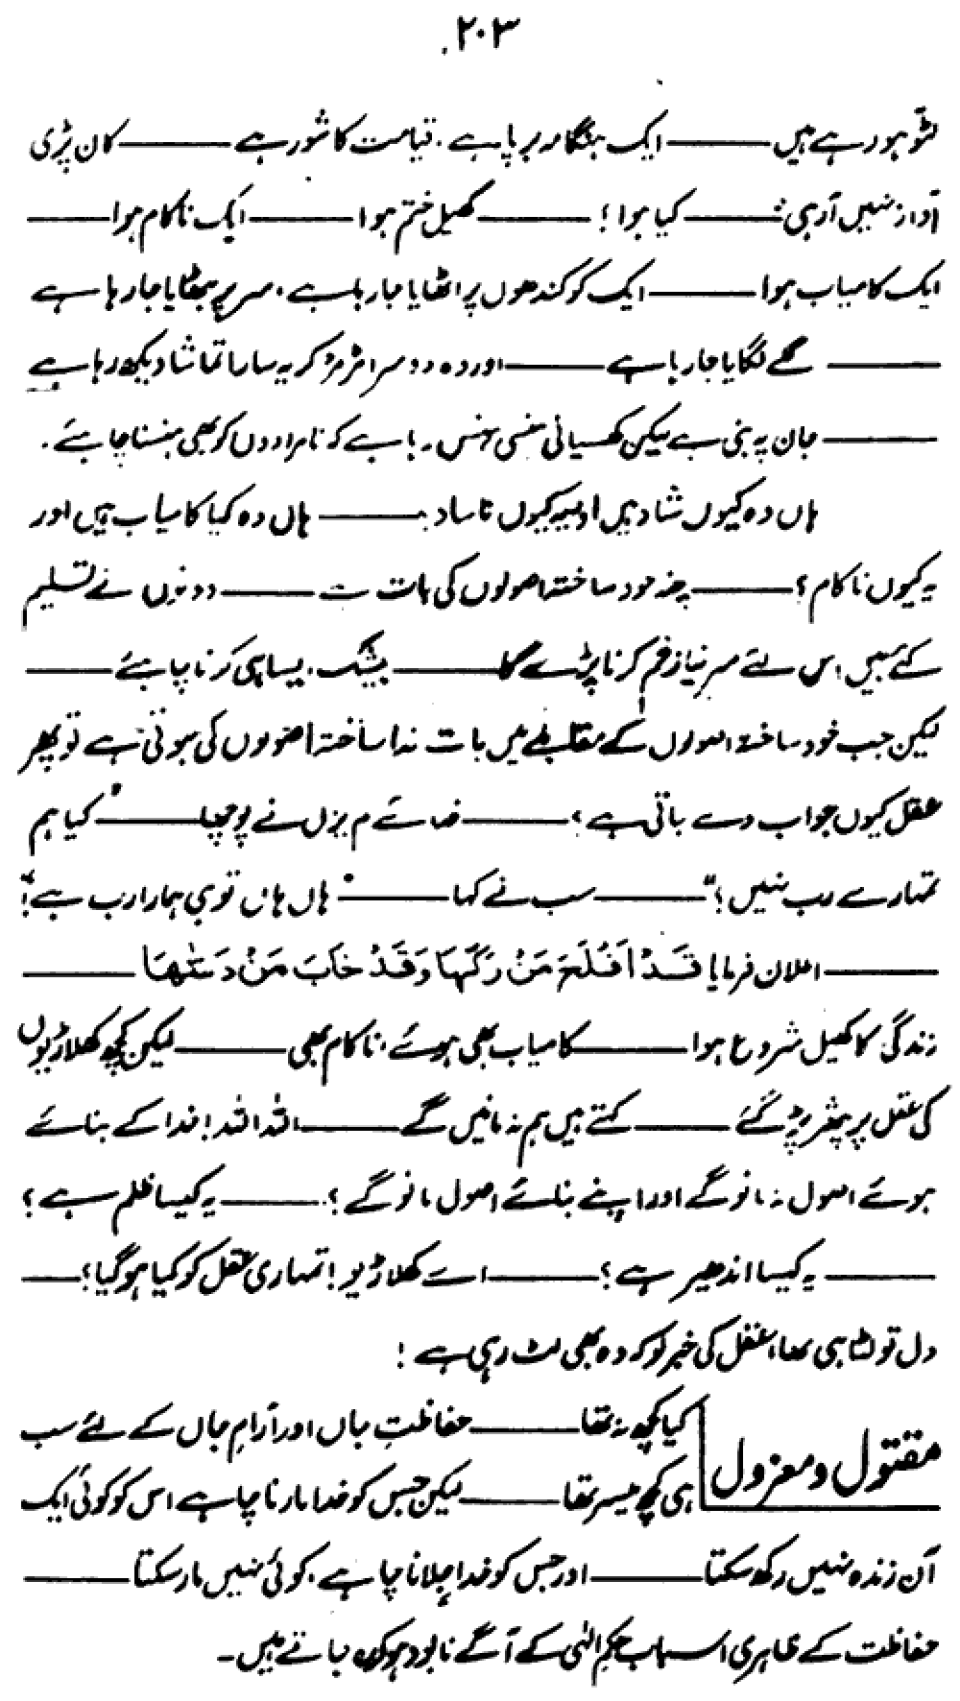 ۲۰۳
لٹو ہو رہے ہیں ——— ایک ہنگامہ برپا ہے، قیامت کا شور ہے ——— کان پڑی
آواز نہیں آرہی: ——— کیا ہوا؟ ——— کھیل ختم ہوا ——— ایک ناکام ہوا ———
ایک کامیاب ہوا ——— ایک کو کندھوں پر اٹھایا جا رہا ہے، سر پر بٹھایا جا رہا ہے
——— گلے لگایا جا رہا ہے ——— اور وہ دوسرا مڑ مڑ کر یہ سارا تماشا دیکھ رہا ہے
——— جان پہ بنی ہے لیکن کھسیانی ہنسی ہنس رہا ہے کہ نامرادوں کو بھی ہنسنا چاہئے۔
ہاں وہ کیوں شاد ہیں اور یہ کیوں ناشاد ——— ہاں وہ کیا کامیاب ہیں اور
یہ کیوں ناکام؟ ——— چند خود ساختہ اصولوں کی بات ہے ——— دونوں نے تسلیم
کئے ہیں، اس لئے سر نیاز خم کرنا پڑے گا ——— بیشک، ایسا ہی کرنا چاہئے ———
لیکن جب خود ساختہ اصولوں کے مقابلے میں بات خدا ساختہ اصولوں کی ہوتی ہے تو پھر
عقل کیوں جواب دے جاتی ہے؟ ——— خدائے لم یزل نے پوچھا ——— "کیا ہم
تمہارے رب نہیں؟" ——— سب نے کہا ——— "ہاں ہاں تو ہی ہمارا رب ہے!"
——— اعلان فرمایا قَدْ اَفْلَحَ مَنْ زَكّٰهَا وَقَدْ خَابَ مَنْ دَسّٰهَا ———
زندگی کا کھیل شروع ہوا ——— کامیاب بھی ہوئے، ناکام بھی ——— لیکن کچھ کھلاڑیوں
کی عقل پر پتھر پڑ گئے ——— کہتے ہیں ہم نہ مانیں گے ——— اللہ اللہ! خدا کے بنائے
ہوئے اصول نہ مانو گے اور اپنے بنائے اصول مانو گے؟ ——— یہ کیسا ظلم ہے؟
——— یہ کیسا اندھیر ہے؟ ——— اے کھلاڑیو! تمہاری عقل کو کیا ہو گیا؟ ———
دل تو لٹا ہی تھا، عقل کی خبر لو کہ وہ بھی لٹ رہی ہے!
مقتول و معزول
کیا کچھ نہ تھا ——— حفاظتِ جاں اور آرامِ جاں کے لئے سب
ہی کچھ میسر تھا ——— لیکن جس کو خدا مارنا چاہے اس کو کوئی ایک
آن زندہ نہیں رکھ سکتا ——— اور جس کو خدا جِلانا چاہے، کوئی نہیں مار سکتا ———
حفاظت کے ظاہری اسباب حکمِ الٰہی کے آگے نابود ہو کر رہ جاتے ہیں۔